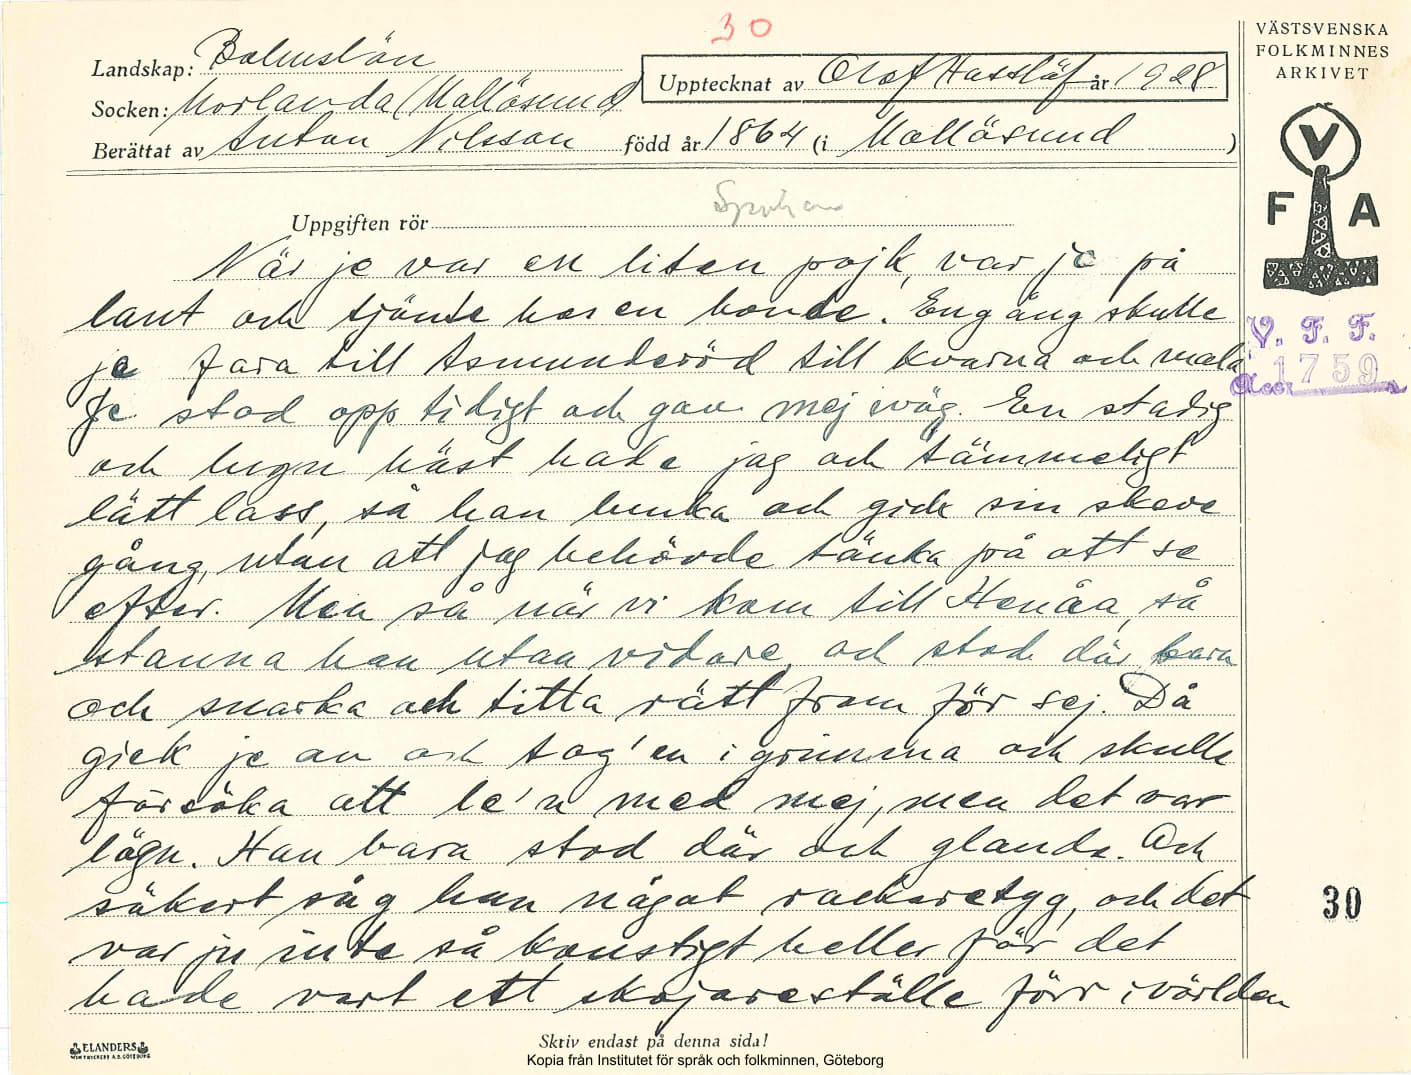 30
VÄSTSVENSKA
FOLKMINNES
ARKIVET
Landskap: Bohuslän
Upptecknat av Olof Hasslöf år 1928
Socken: Morlanda (Mollösund)
Berättat av Anton Nilsson född år 1864 (i Mollösund )
V
F A
Uppgiften rör
När je var en liten pojk, var je på
lant och tjänte hos en bonde. Engång skulle
je fara till Asmunderöd till kvarna och mala
V. F. F.
Je stod opp tidigt och gav mej iväg. En stadig
Acc. 1759
och lugn häst hade jag och tämmeligt
lätt lass, så han lunka och gick sin skeve
gång, utan att jag behövde tänka på att se
efter. Men så när vi kom till Henåa, så
stanna han utan vidare, och stod där bara
och snarka och titta rätt fram för sej. Då
gick je an och tog'en i grimma och skulle
försöka att le'n med mej, men det var
lögn. Han bara stod där och glanda. Och
säkert såg han något rackaretyg, och det
30
var ju inte så konstigt heller för det
hade vart ett skojareställe förr i världen
Skriv endast på denna sida!
ELANDERS
Kopia från Institutet för språk och folkminnen, Göteborg